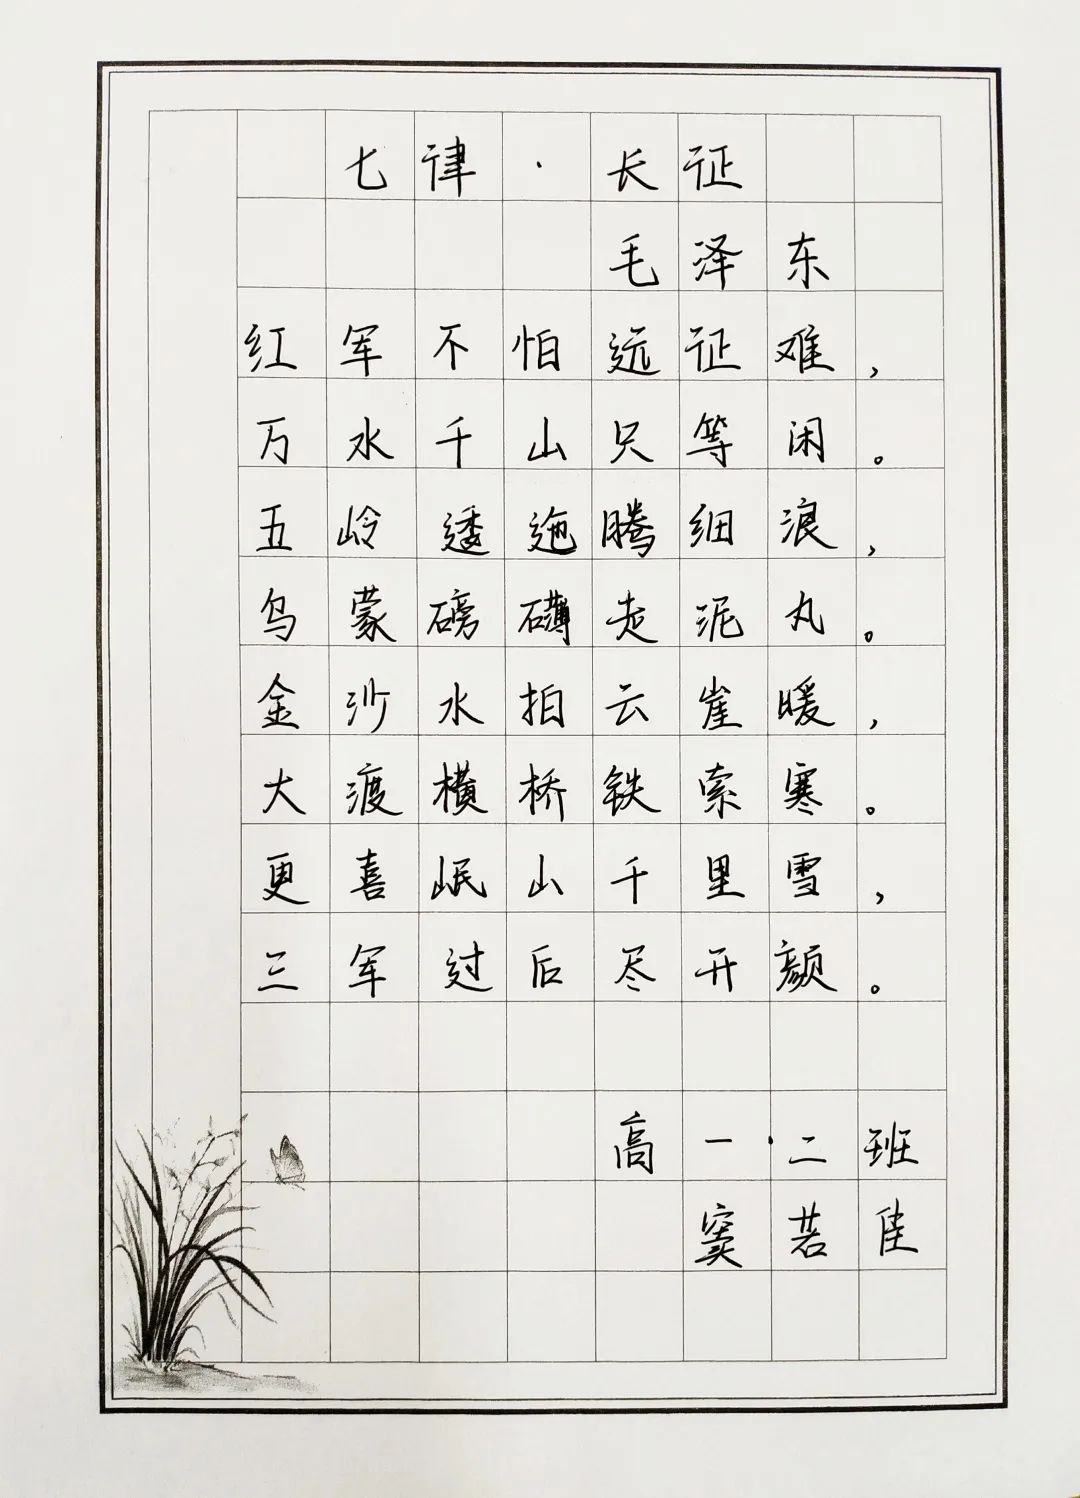 七律·长征
毛泽东
红军不怕远征难，
万水千山只等闲。
五岭逶迤腾细浪，
乌蒙磅礴走泥丸。
金沙水拍云崖暖，
大渡横桥铁索寒。
更喜岷山千里雪，
三军过后尽开颜。
高一·二班
窦若佳